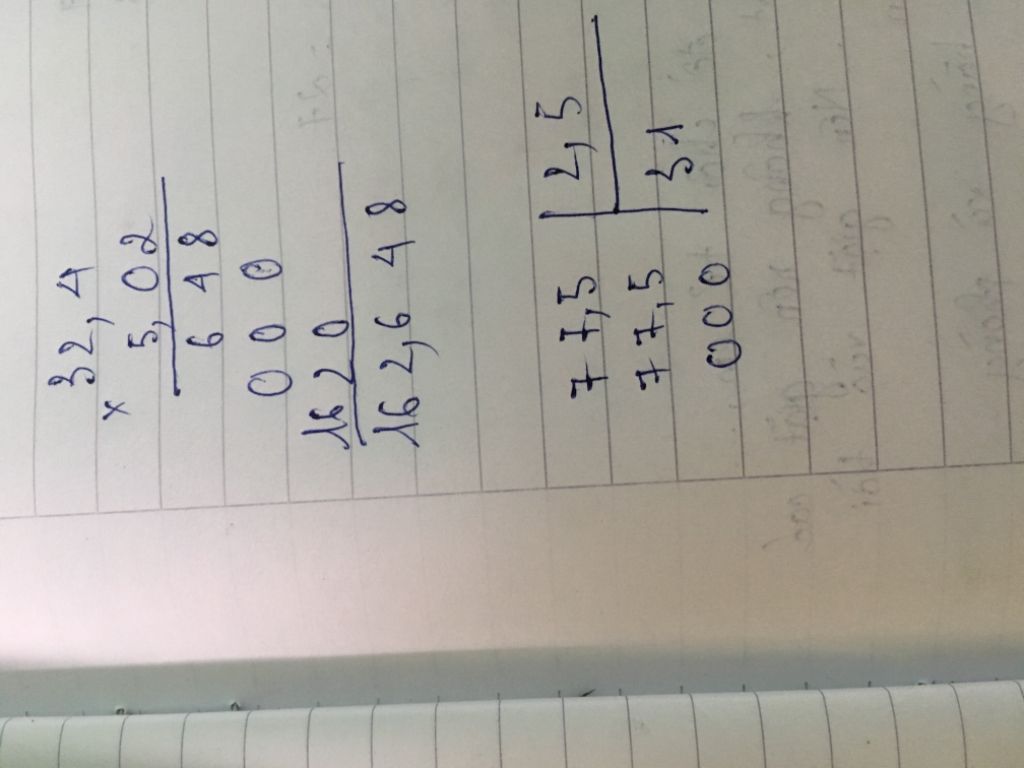 32,4
x 5,02
648
000
1620
162,648
77,5 | 2,5
77,5 | 31
000